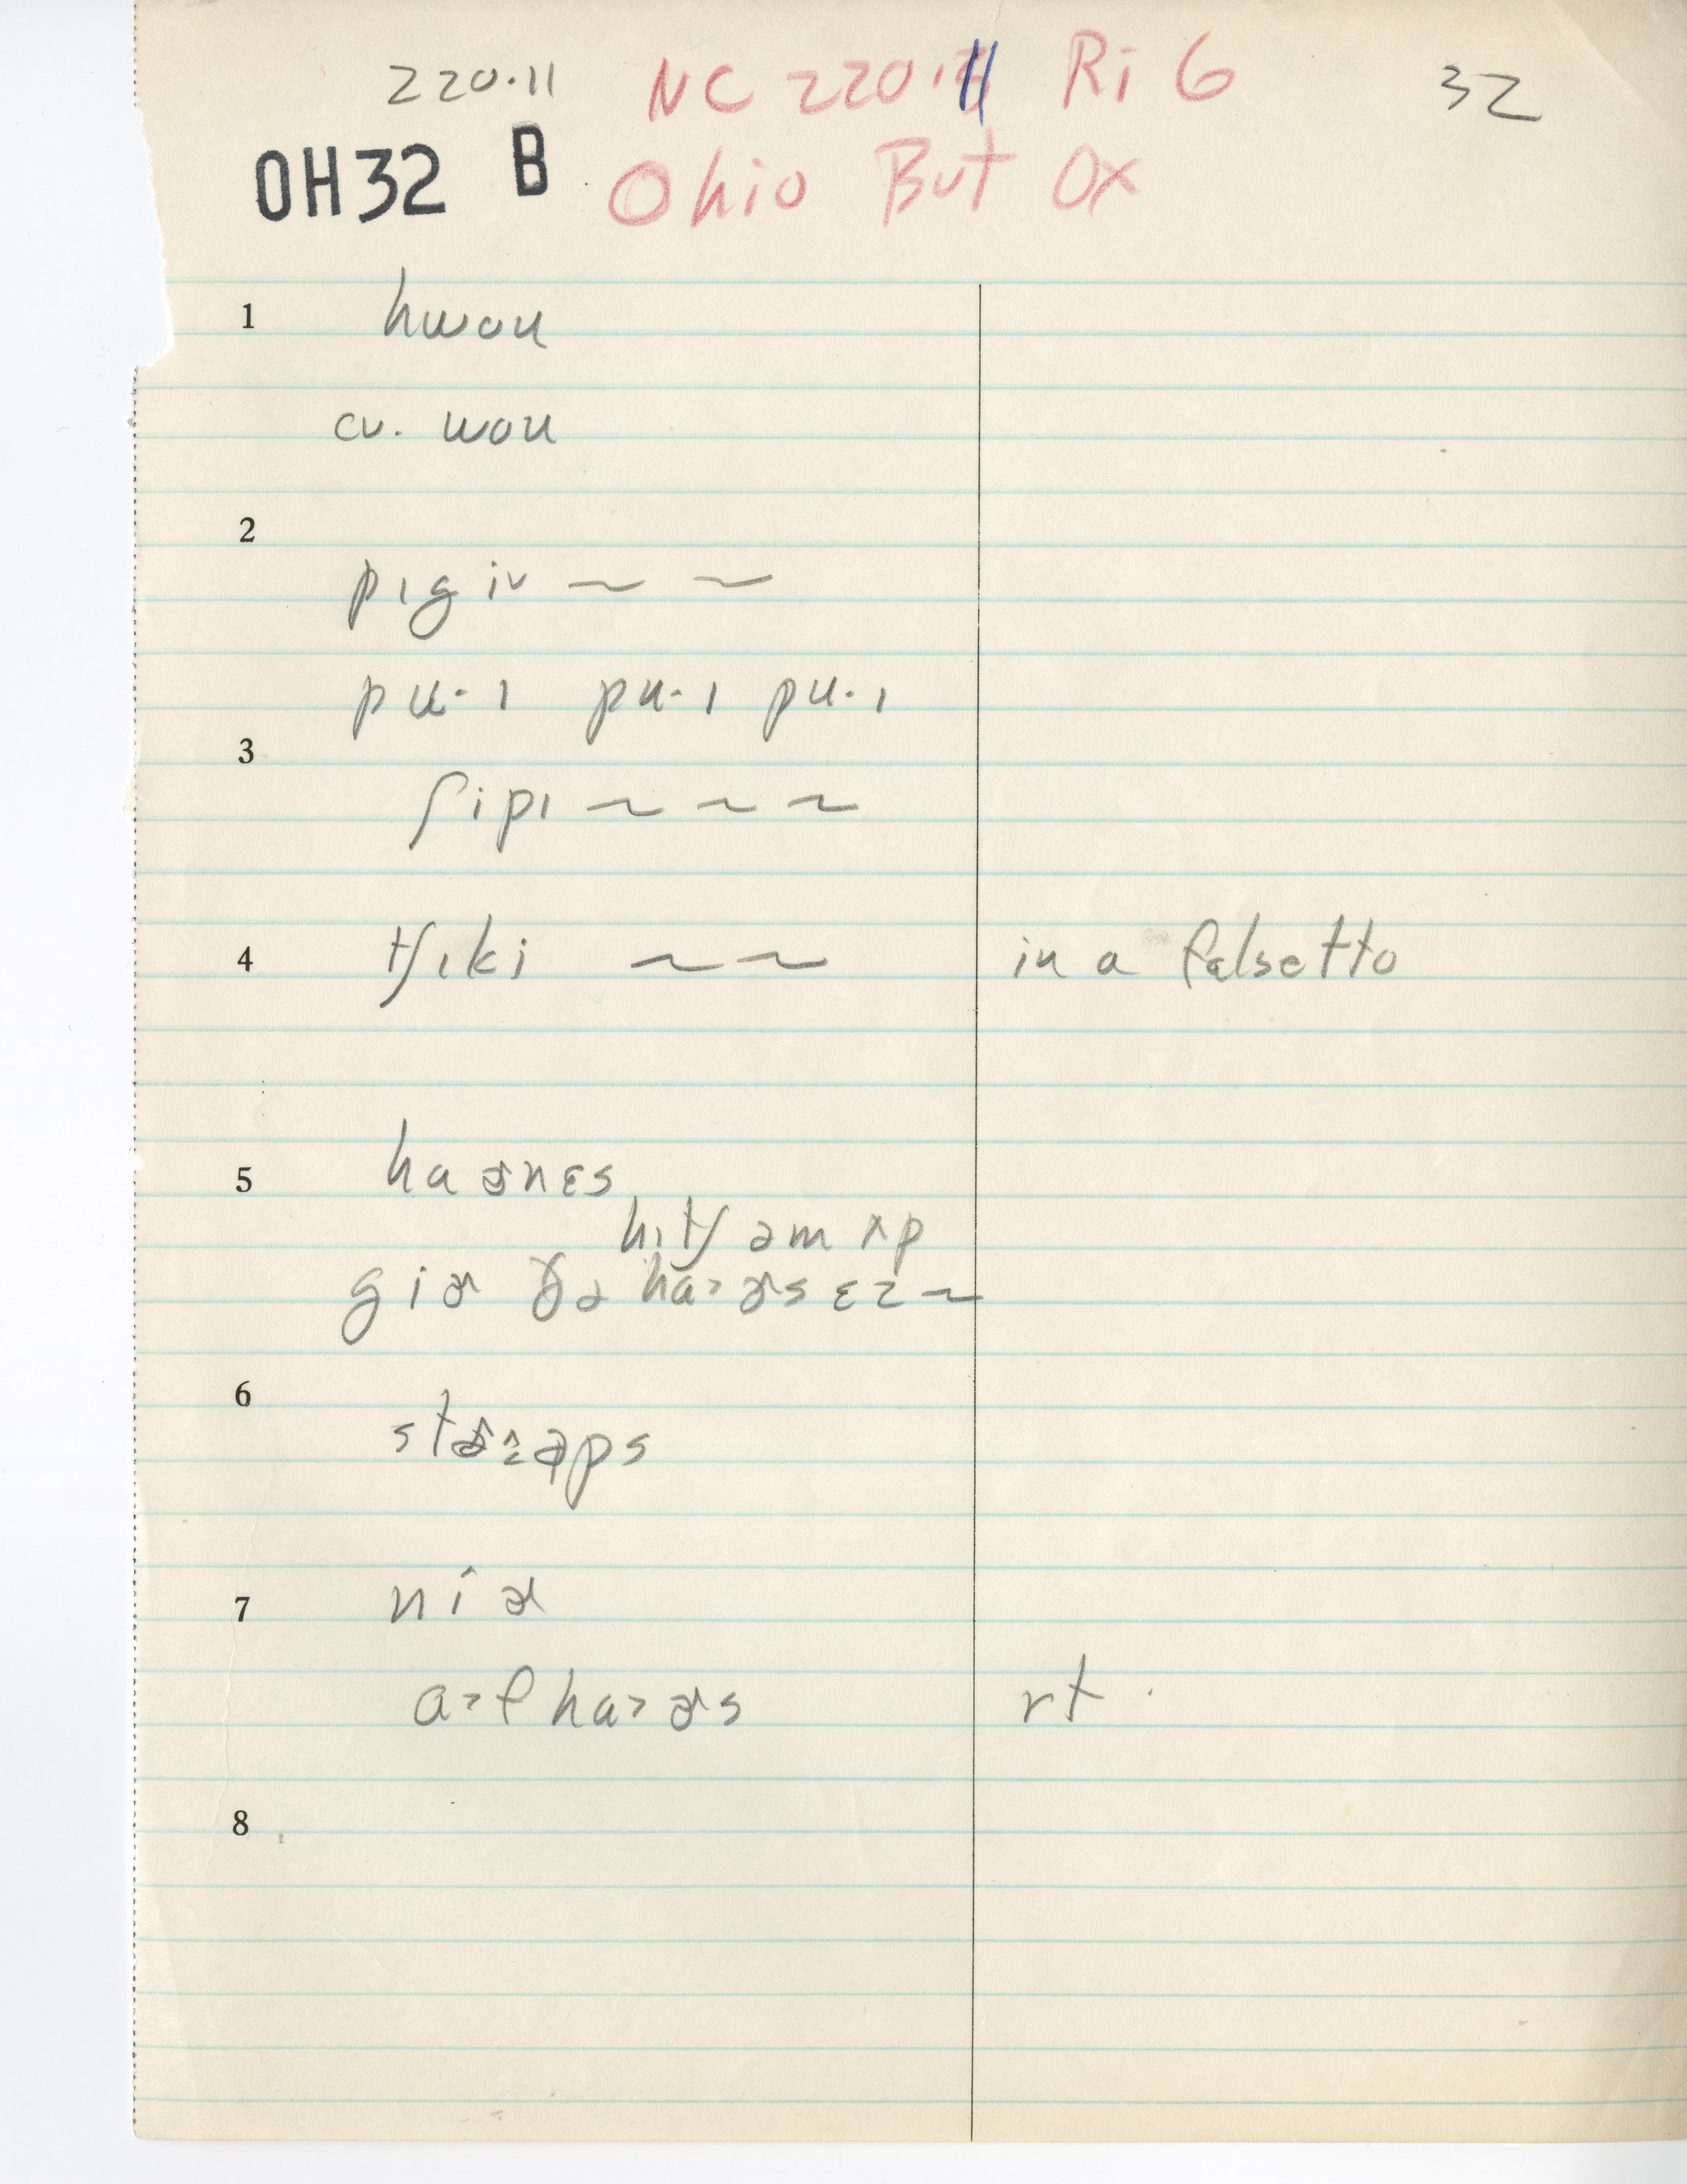 220.11 NC 220.11 Ri 6 32
OH32 B Ohio But Ox
1 hwou
cv. wou
2
pɪgiv ~ ~
pu·ɪ pu·ɪ pu·ɪ
3
ʃipɪ ~ ~ ~
4 tʃɪki ~ ~ in a falsetto
5 haɚnɛs
hɪtʃ əm ʌp
giɚ ðə ha˃ɚsɛz ~
6
7 níɚ
a˃f ha˃ɚs rt.
8